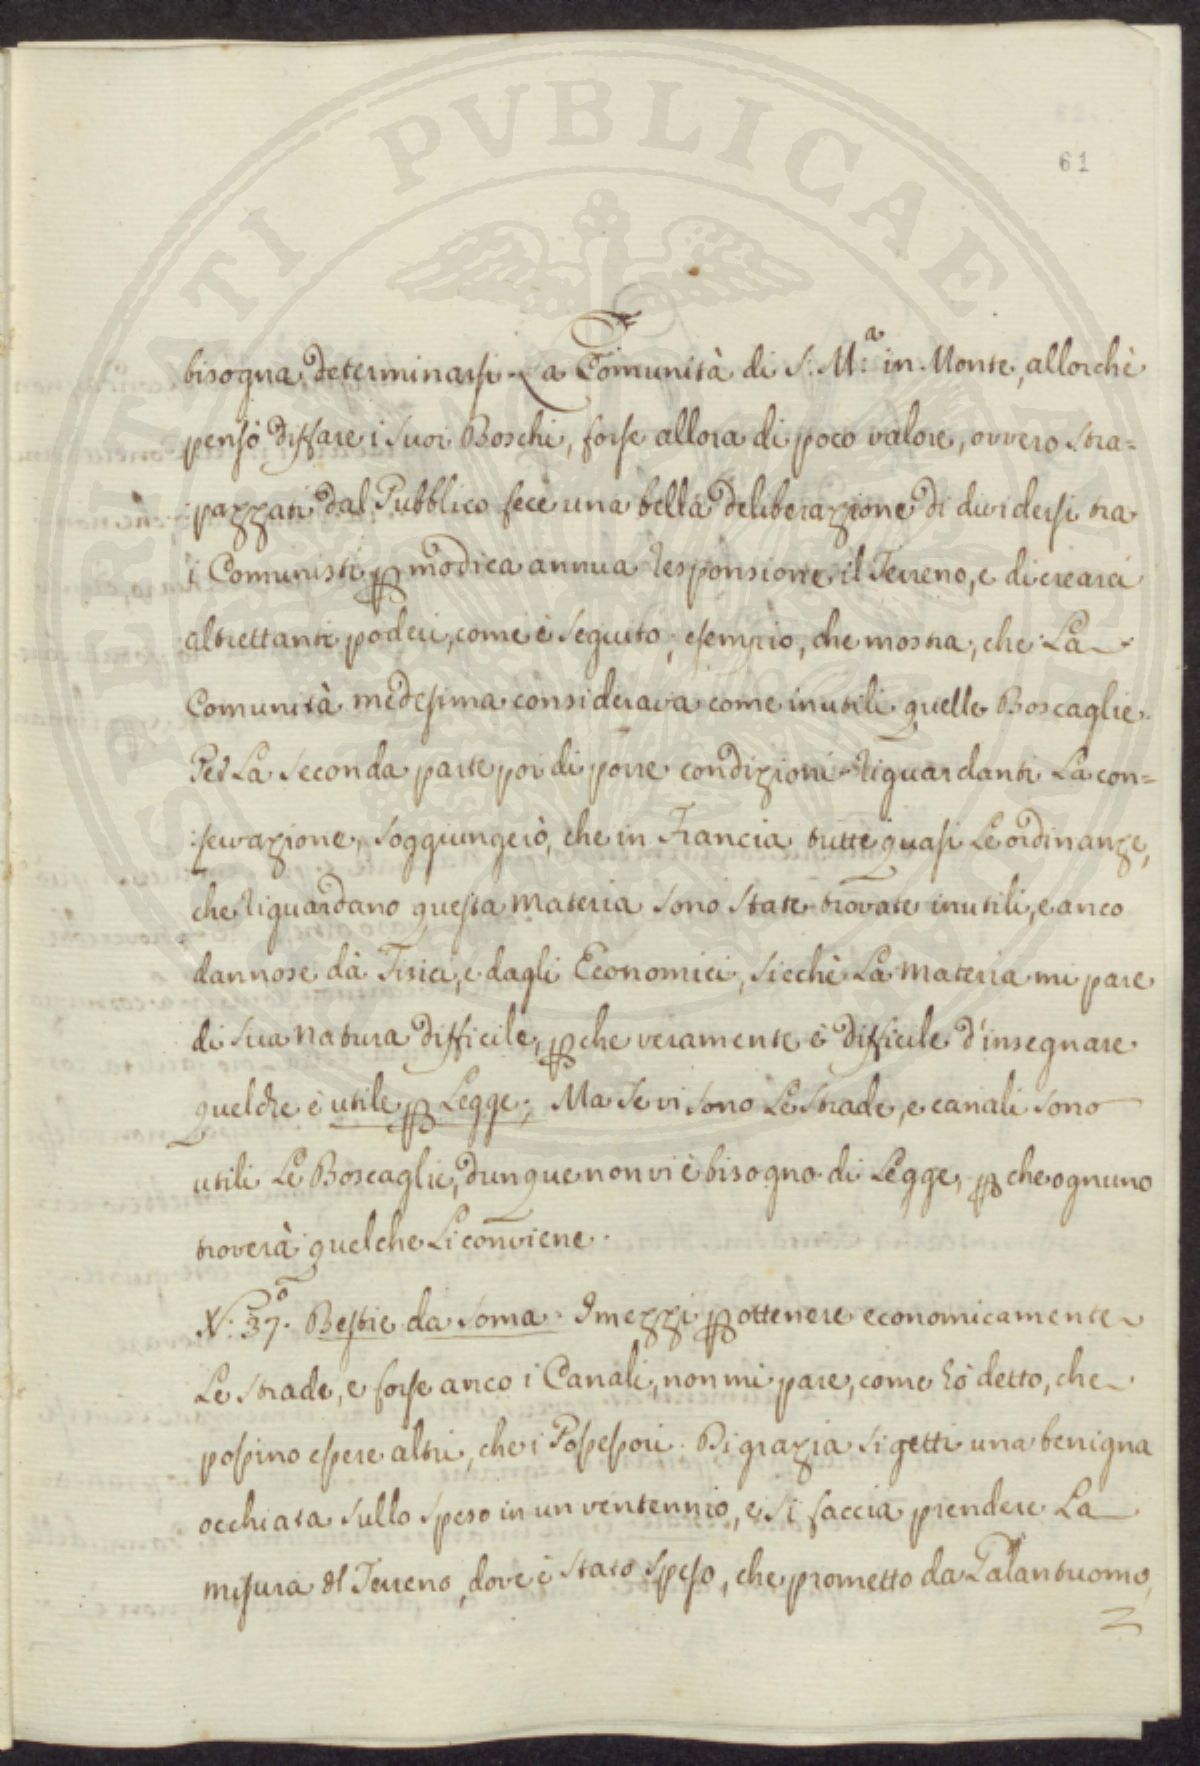 PROSPERITATI PVBLICAE
61
bisogna determinarsi. La Comunità di S. M.ª in Monte, allorchè
pensò disfare i suoi Boschi, forse allora di poco valore, ovvero stra=
:pazzati dal Pubblico fece una bella deliberazione di dividersi tra
i Comunisti p modica annua responsione il Terreno, e di crearci
altrettanti poderi, come è seguito, esempio, che mostra, che La
Comunità medesima considerava come inutili quelle Boscaglie.
Per La seconda parte poi di porre condizioni riguardanti La con=
:servazione, soggiungerò, che in Francia tutte quasi Le ordinanze,
che riguardano questa materia sono state trovate inutili, e anco
dannose dà Fisici, e dagli Economici, sicchè La materia mi pare
di sua natura difficile, pche veramente è difficile d'insegnare
quelche è utile p Legge; Ma se vi sono Le Strade, e canali sono
utili Le Boscaglie, dunque non vi è bisogno di Legge, pche ognuno
troverà quelche Li conviene.
N.º 37. Bestie da Soma. I mezzi p ottenere economicamente
Le Strade, e forse anco i Canali, non mi pare, come hò detto, che
possino essere altri, che i Possessori. Di grazia si getti una benigna
occhiata sullo speso in un ventennio, e si faccia prendere La
misura del Terreno, dove è stato speso, che prometto da Galantuomo,